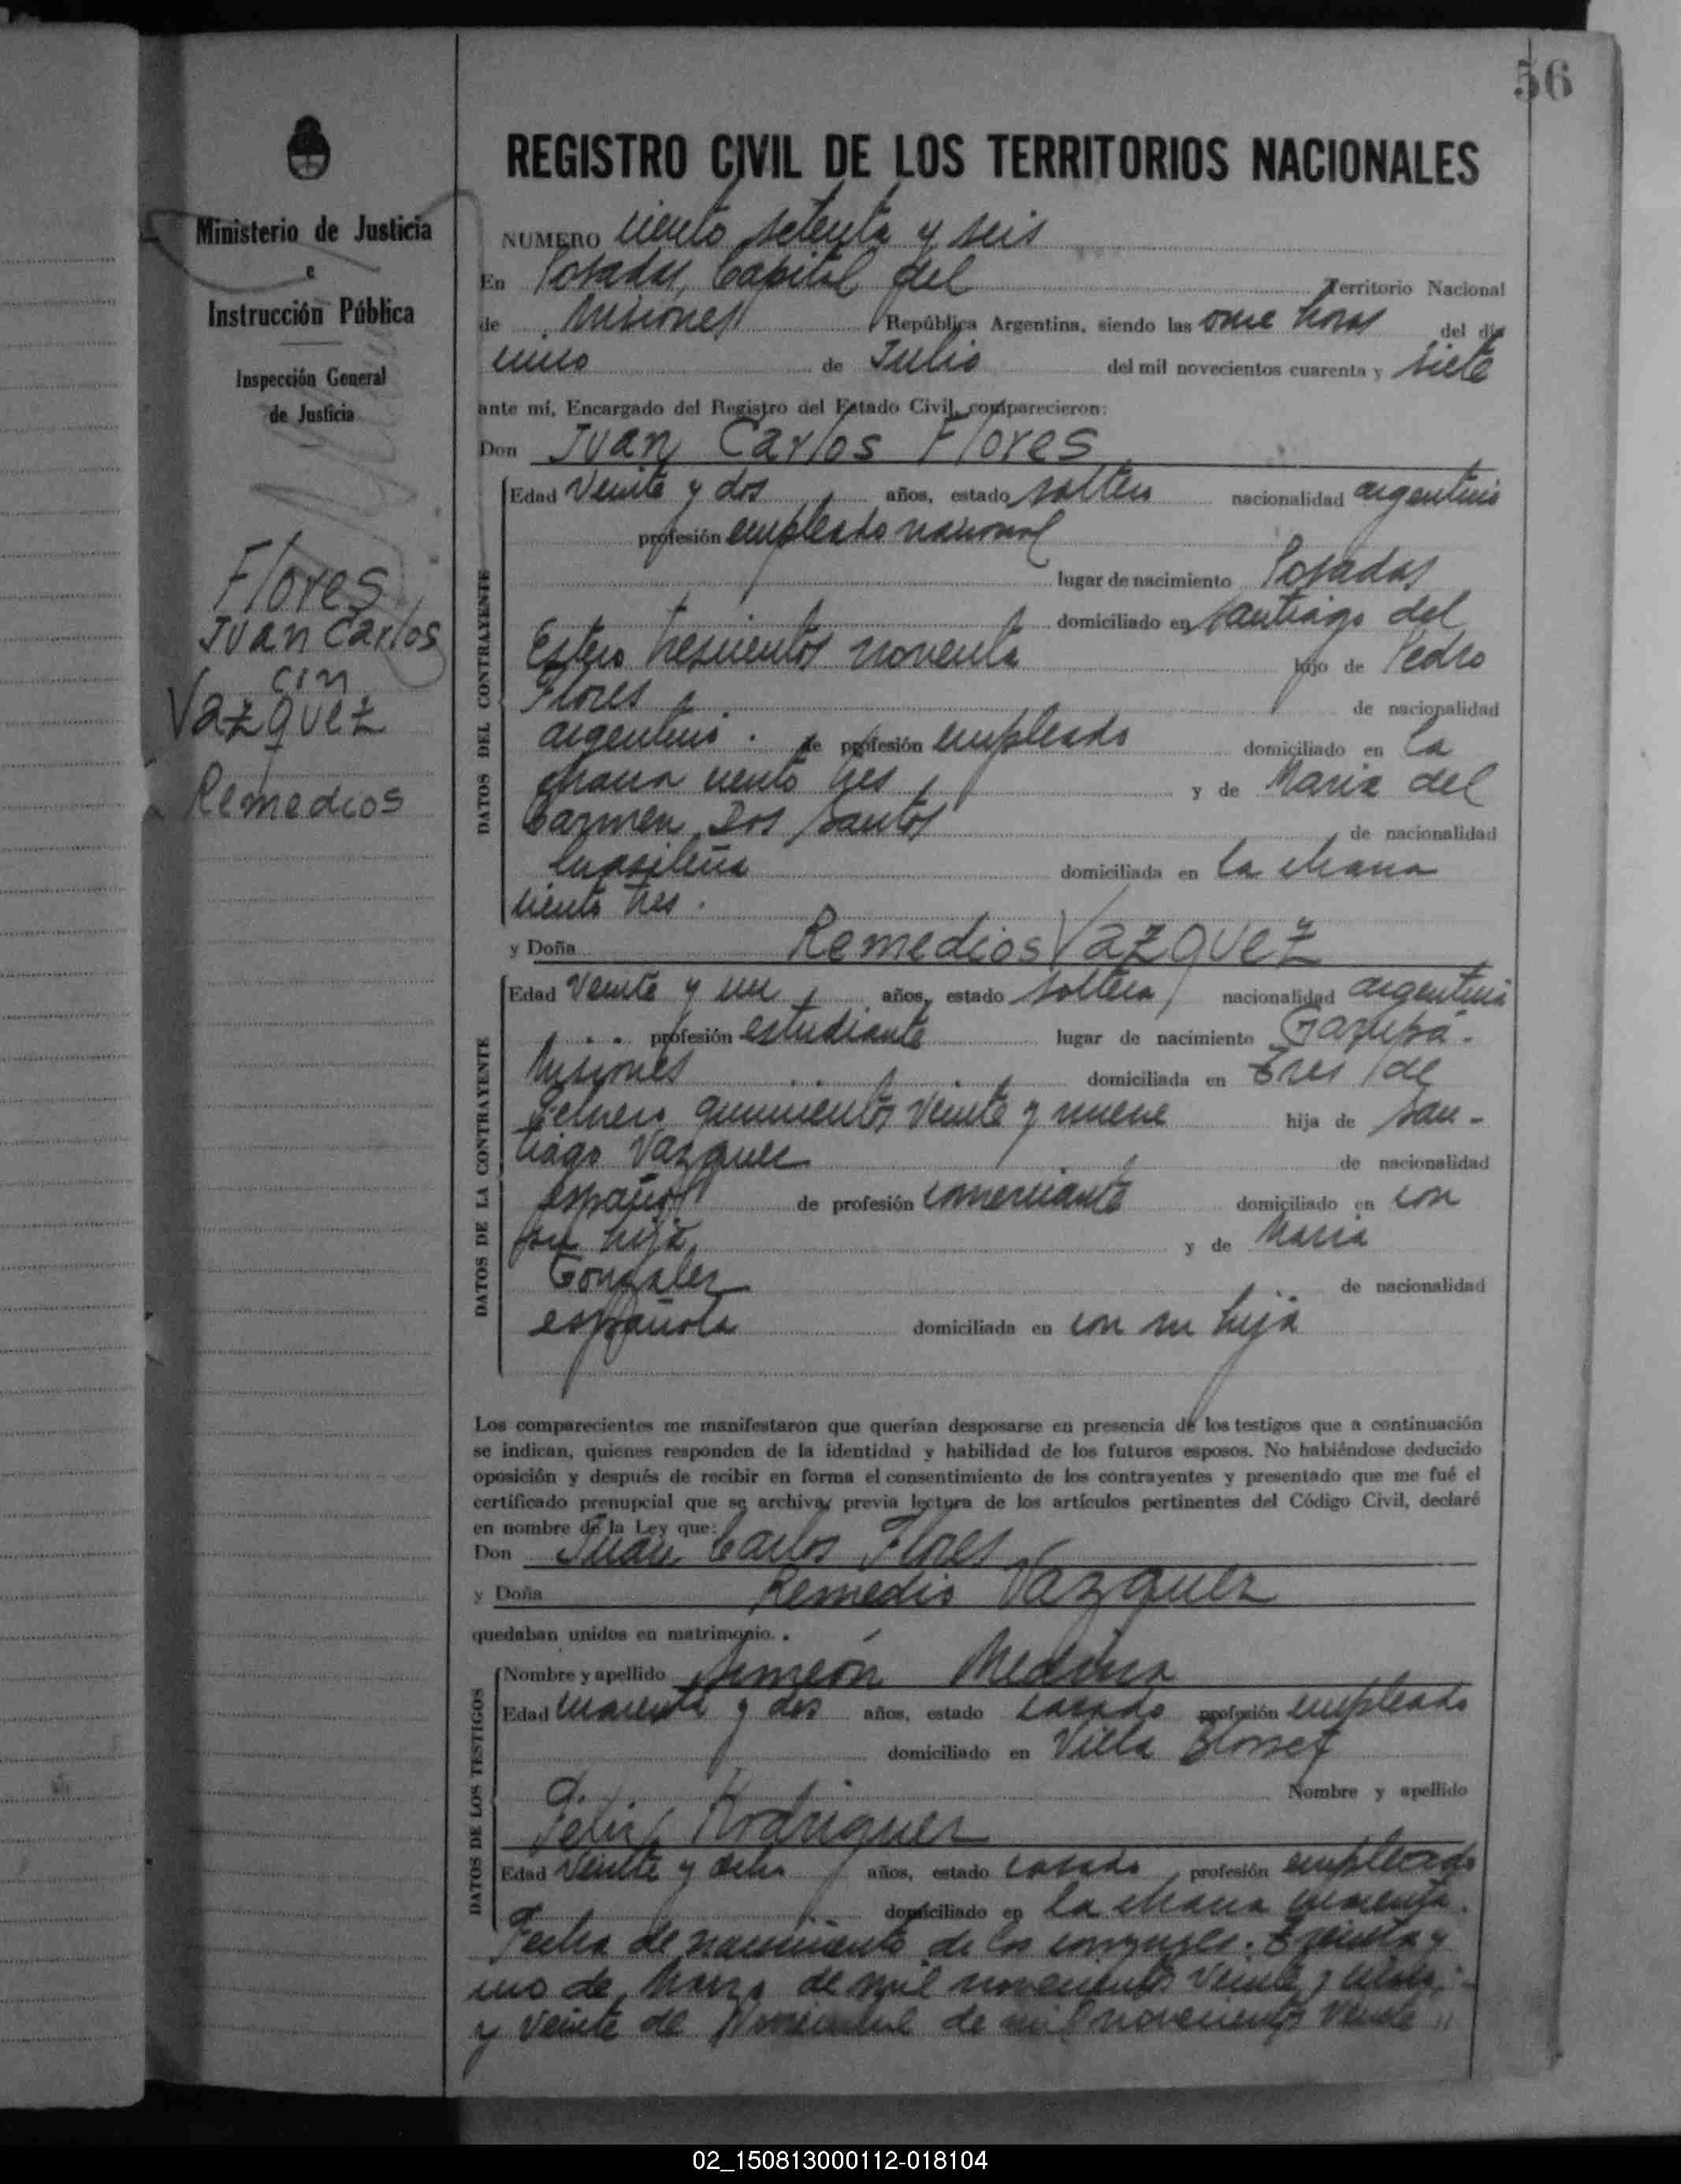 56
Ministerio de Justicia
e
Instrucción Pública
Inspección General
de Justicia
Flores
Juan Carlos
con
Vazquez
Remedios
REGISTRO CIVIL DE LOS TERRITORIOS NACIONALES
NUMERO ciento setenta y seis
En Posadas, Capital del Territorio Nacional
de Misiones República Argentina, siendo las once horas del día
cinco de Julio del mil novecientos cuarenta y siete
ante mí, Encargado del Registro del Estado Civil, comparecieron:
Don Juan Carlos Flores
DATOS DEL CONTRAYENTE
Edad Veinte y dos años, estado soltero nacionalidad argentino
profesión empleado nacional
lugar de nacimiento Posadas
domiciliado en Santiago del
Estero trescientos noventa hijo de Pedro
Flores de nacionalidad
argentino . de profesión empleado domiciliado en La
chacra ciento tres y de Maria del
Carmen Dos Santos de nacionalidad
brasileña domiciliada en la chacra
ciento tres .
y Doña Remedios Vazquez
DATOS DE LA CONTRAYENTE
Edad Veinte y un años, estado soltera nacionalidad argentina
profesión estudiante lugar de nacimiento Garupá -
Misiones domiciliada en Tres de
Febrero quinientos veinte y nueve hija de San -
tiago Vazquez de nacionalidad
español de profesión comerciante domiciliado en con
su hija y de Maria
Gonzalez de nacionalidad
española domiciliada en con su hija
Los comparecientes me manifestaron que querían desposarse en presencia de los testigos que a continuación
se indican, quienes responden de la identidad y habilidad de los futuros esposos. No habiéndose deducido
oposición y después de recibir en forma el consentimiento de los contrayentes y presentado que me fué el
certificado prenupcial que se archiva, previa lectura de los artículos pertinentes del Código Civil, declaré
en nombre de la Ley que:
Don Juan Carlos Flores
y Doña Remedio Vazquez
quedaban unidos en matrimonio.
DATOS DE LOS TESTIGOS
Nombre y apellido Simeón Medina
Edad cuarenta y dos años, estado casado profesión empleado
domiciliado en Villa Blosset
Nombre y apellido
Felix Rodriguez
Edad Veinte y ocho años, estado casado profesión empleado
domiciliado en la chacra cuarenta.
Fecha de nacimiento de los conyuges. Treinta y
uno de Marzo de mil novecientos veinte y cinco,
y veinte de Noviembre de mil novecientos veinte
02_150813000112-018104